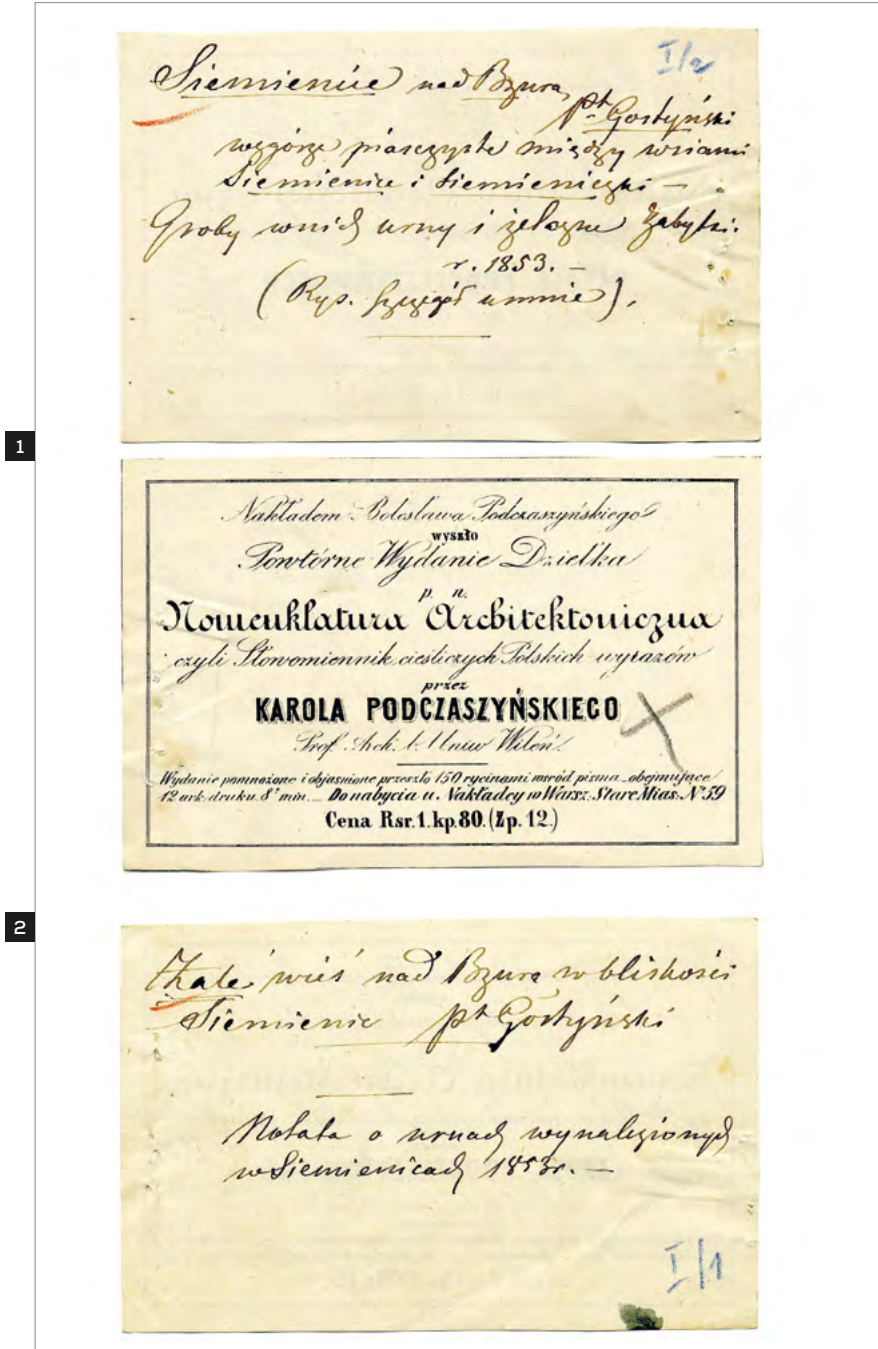 I/2
Siemienice nad Bzurą,
pt Gostyński
wzgórze piasczyste między wsiami
Siemienice i Siemieniczki —
Groby w nich urny i żelazne Zabytki.
r. 1853. —
(Rys. szczegół u mnie).
1
Nakładem Bolesława Podczaszyńskiego
wyszło
Powtórne Wydanie Dziełka
p. n.
Nomenklatura Architektoniczna
czyli Słowomiennik cieśliczych Polskich wyrazów
przez
KAROLA PODCZASZYŃSKIEGO
Prof. Arch. b. Uniw Wileń.
Wydanie pomnożone i objaśnione przeszło 150 rycinami wśród pisma _ obejmujące
12 ark. druku 8º min. _ Do nabycia u Nakładcy w Warsz. Stare Mias. Nº 59
Cena Rsr. 1. kp. 80. (Zp. 12.)
2
wieś nad Bzurą w bliskości
Siemienic pt Gostyński
Notata o urnach wynalezionych
w Siemienicach 1853 r. —
I/1